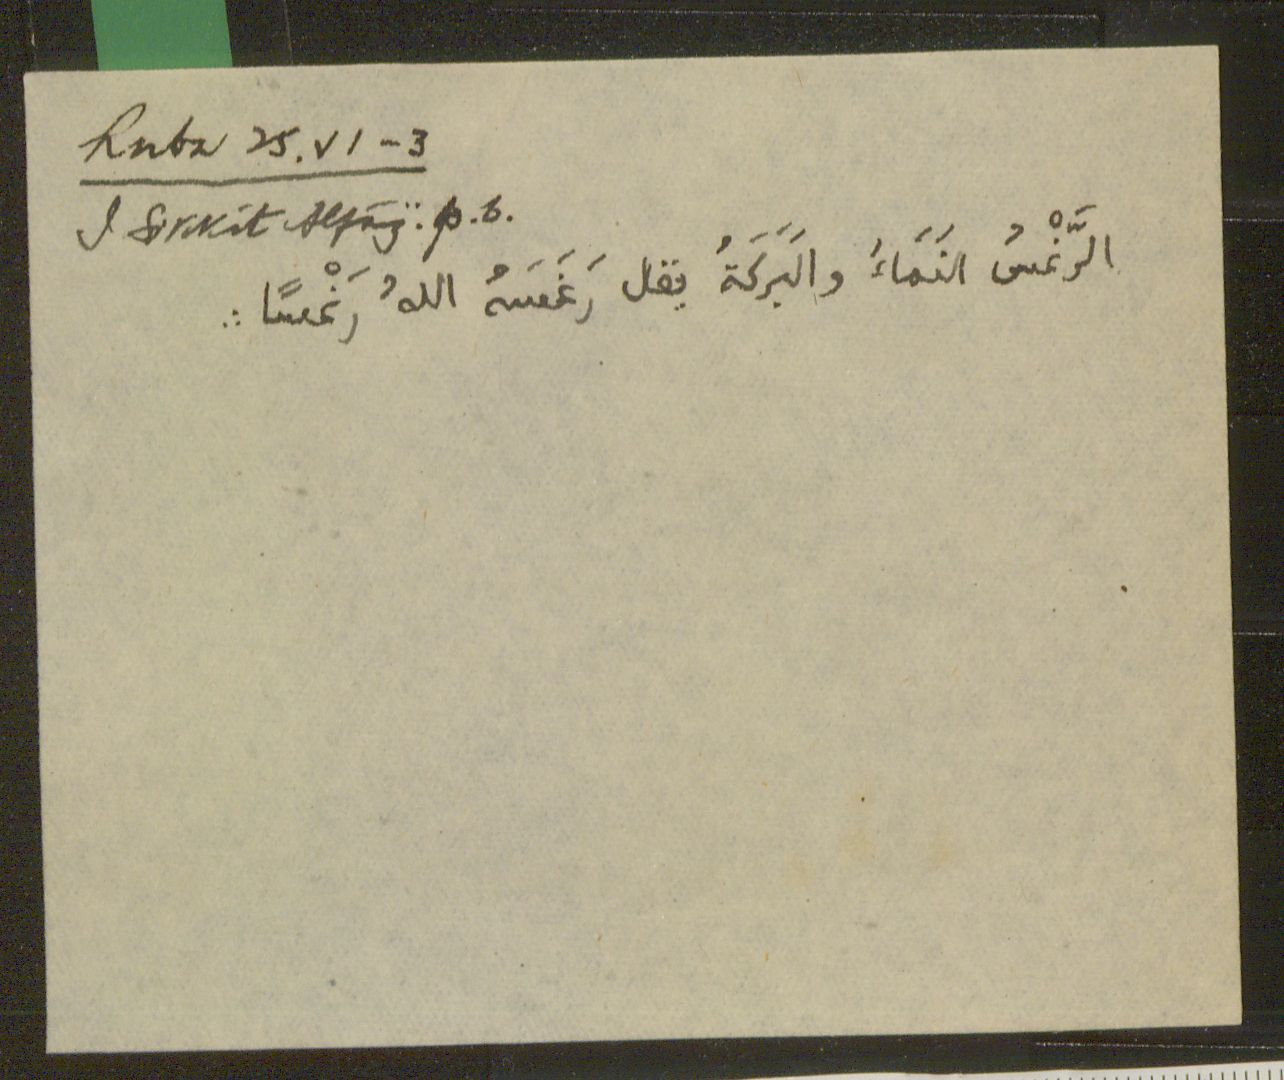 Ruba 25.VI-3
I Sikkit Alfāẓ: p.6.
الرَّغْسُ النَمَاءُ والبَرَكَةُ يقل رَغَسَهُ اللهُ رَغْسًا ∴